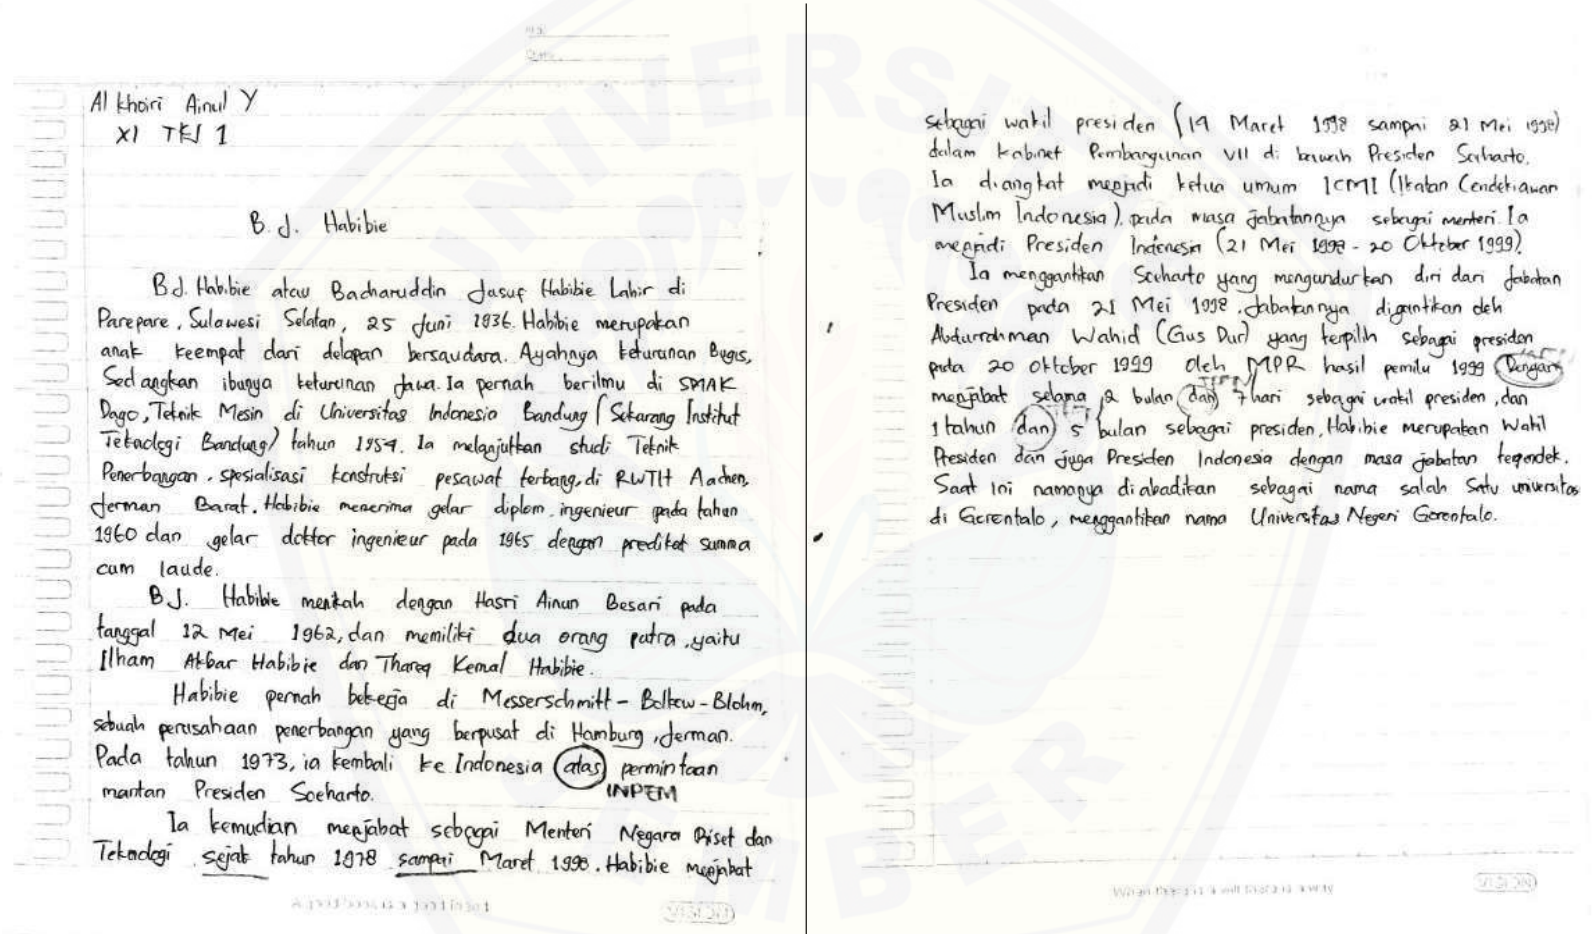 Al khoiri Ainul Y
XI TKJ 1
B. J. Habibie
B.J. Habibie atau Bacharuddin Jusuf Habibie Lahir di
Parepare, Sulawesi Selatan, 25 Juni 1936. Habibie merupakan
anak keempat dari delapan bersaudara. Ayahnya keturunan Bugis,
Sedangkan ibunya keturunan Jawa. Ia pernah berilmu di SMAK
Dago, Teknik Mesin di Universitas Indonesia Bandung (Sekarang Institut
Teknologi Bandung) tahun 1954. Ia melanjutkan studi Teknik
Penerbangan, spesialisasi konstruksi pesawat terbang, di RWTH Aachen,
Jerman Barat. Habibie menerima gelar diplom ingenieur pada tahun
1960 dan gelar doktor ingenieur pada 1965 dengan predikat summa
cum laude.
B.J. Habibie menikah dengan Hasri Ainun Besari pada
tanggal 12 Mei 1962, dan memiliki dua orang putra, yaitu
Ilham Akbar Habibie dan Thareq Kemal Habibie.
Habibie pernah bekerja di Messerschmitt - Bolkow - Blohm,
sebuah perusahaan penerbangan yang berpusat di Hamburg, Jerman.
Pada tahun 1973, ia kembali ke Indonesia atas permintaan
INPEM
mantan Presiden Soeharto.
Ia kemudian menjabat sebagai Menteri Negara Riset dan
Teknologi sejak tahun 1978 sampai Maret 1998. Habibie menjabat
sebagai wakil presiden (14 Maret 1998 sampai 21 Mei 1998)
dalam Kabinet Pembangunan VII di bawah Presiden Soeharto.
Ia diangkat menjadi ketua umum ICMI (Ikatan Cendekiawan
Muslim Indonesia), pada masa jabatannya sebagai menteri. Ia
menjadi Presiden Indonesia (21 Mei 1998 - 20 Oktober 1999).
Ia menggantikan Soeharto yang mengundurkan diri dari jabatan
Presiden pada 21 Mei 1998. Jabatannya digantikan oleh
Abdurrahman Wahid (Gus Dur) yang terpilih sebagai presiden
pada 20 Oktober 1999 oleh MPR hasil pemilu 1999 Dengan
menjabat selama 2 bulan dan 7 hari sebagai wakil presiden, dan
1 tahun dan 5 bulan sebagai presiden, Habibie merupakan Wakil
Presiden dan juga Presiden Indonesia dengan masa jabatan terpendek.
Saat ini namanya diabadikan sebagai nama salah satu universitas
di Gorontalo, menggantikan nama Universitas Negeri Gorontalo.